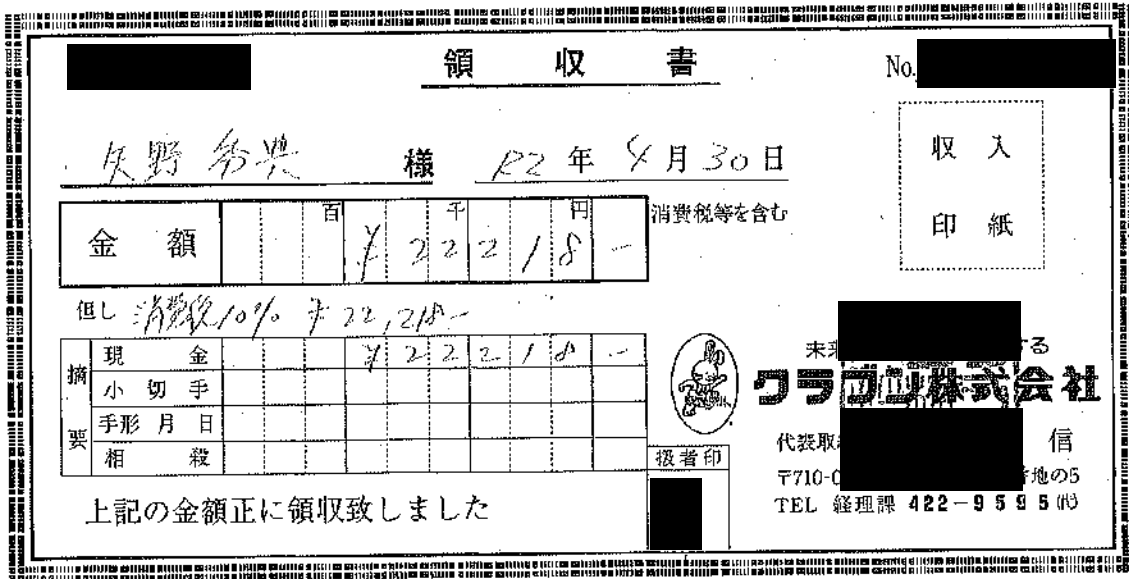 領収書
No.
矢野 秀典 様 R2年 4月30日
収入
印紙
金額 百 千 円
¥22218-
消費税等を含む
但し 消費税10% ¥22,218-
摘要
現金 ¥22218-
小切手
手形 月 日
相殺
扱者印
上記の金額正に領収致しました
未来 する
株式会社
代表取 信
〒710-0 番地の5
TEL 経理課 422-9595㈹